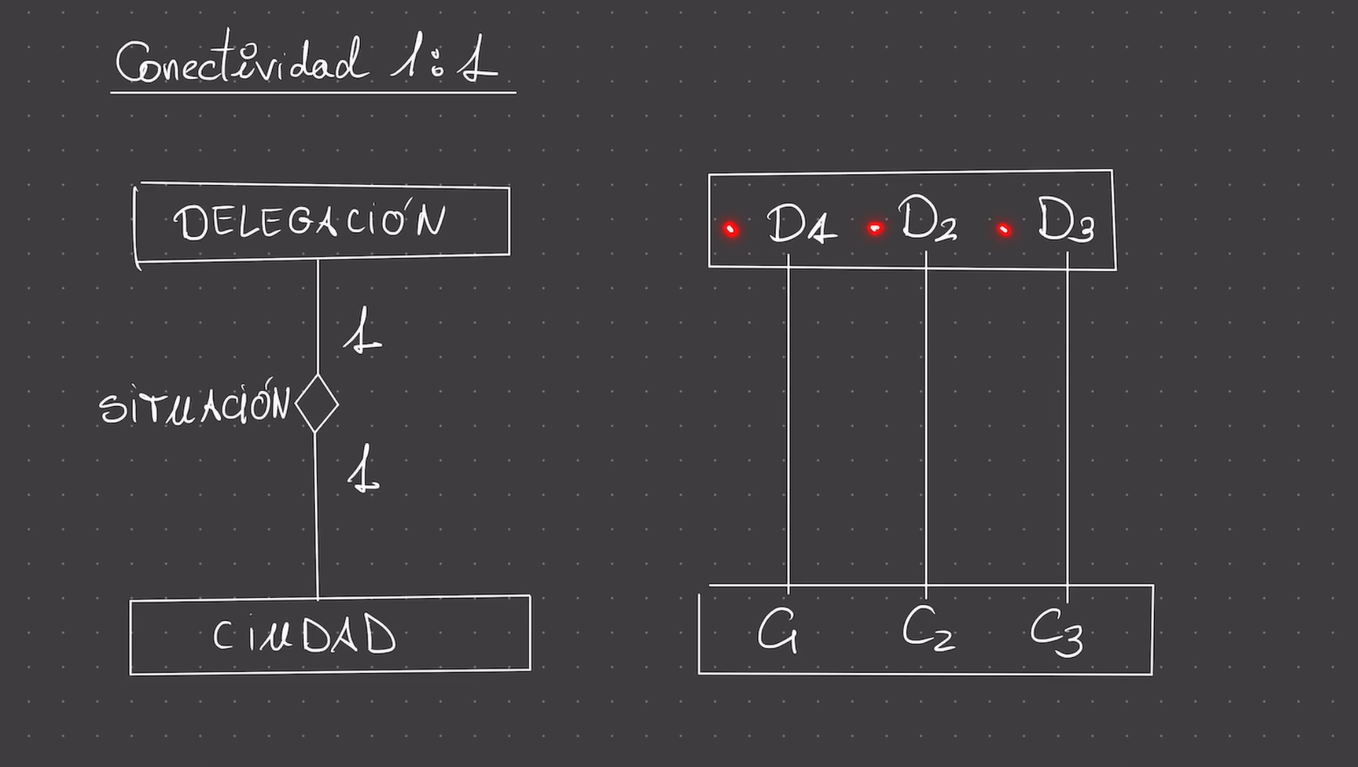 Conectividad 1:1
DELEGACIÓN
1
SITUACIÓN
1
CIUDAD
D1 D2 D3
C1 C2 C3